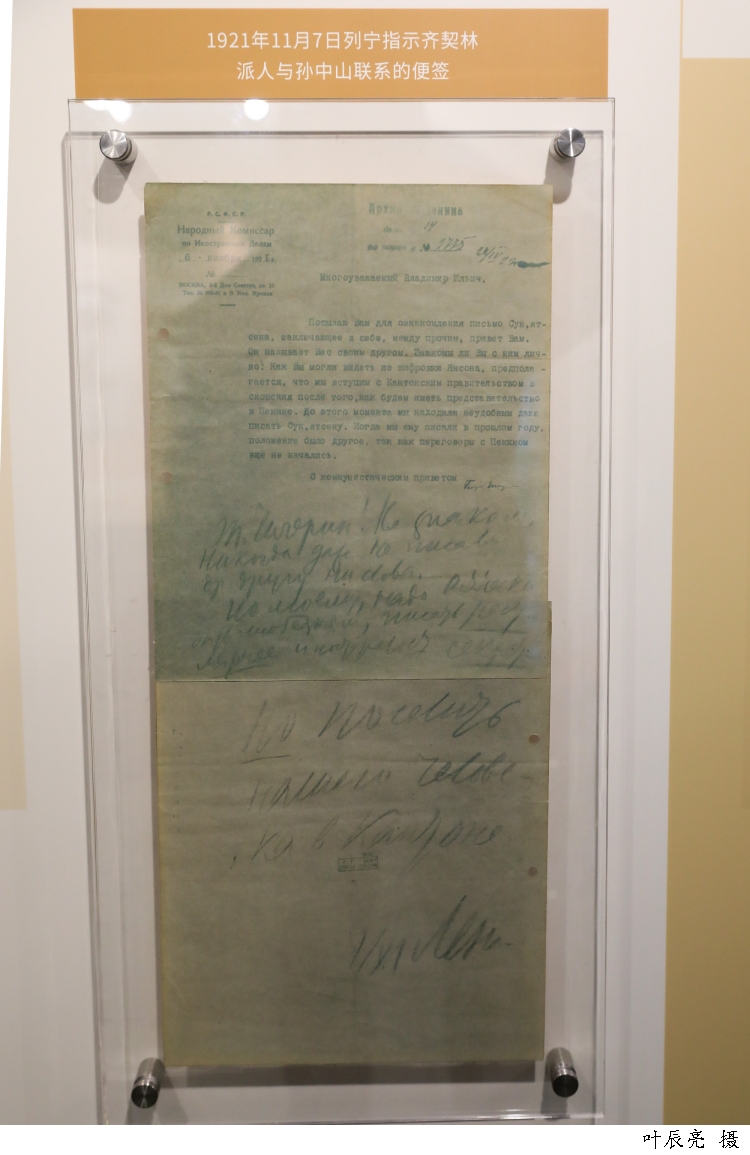 1921年11月7日列宁指示齐契林
派人与孙中山联系的便签
Р. С. Ф. С. Р.
Народный Комиссар
по Иностранным Делам
6 - ноября 1921 г.
№
МОСКВА,
Архив
14
№ 2775
Многоуважаемый Владимир Ильич.
Посылаю Вам для ознакомления письмо Сун,ят-
сена, заключающее в себе, между прочим, привет Вам.
Он называет Вас своим другом. Знакомы ли Вы с ним лич-
но? Как Вы могли видеть из шифровки Янсона, предпола -
гается, что мы вступим с Кантонским правительством в
сношения после того,как будем иметь представительство
в Пекине. До этого момента мы находили неудобным даже
писать Сун,ятсену. Когда мы ему писали в прошлом году,
положение было другое, так как переговоры с Пекином
еще не начались.
С коммунистическим приветом
т. Чичерин! Не знаком,
никогда
др другу ни слова.
По-моему, надо
писать
но послать
нашего челове-
ка в Кантоне.
Лен
叶辰亮 摄